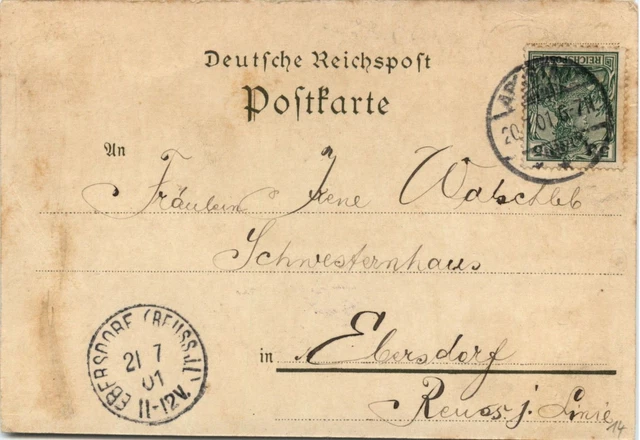 Deutsche Reichspost
Postkarte
REICHSPOST
20.7.01.6-7N.
5 5
An
Fräulein Irene Watschleb
Schwesternhaus
in Ebersdorf
Reuss. j. Linie
EBERSDORF (REUSS J.L.)
21 7
01
11-12V.
14